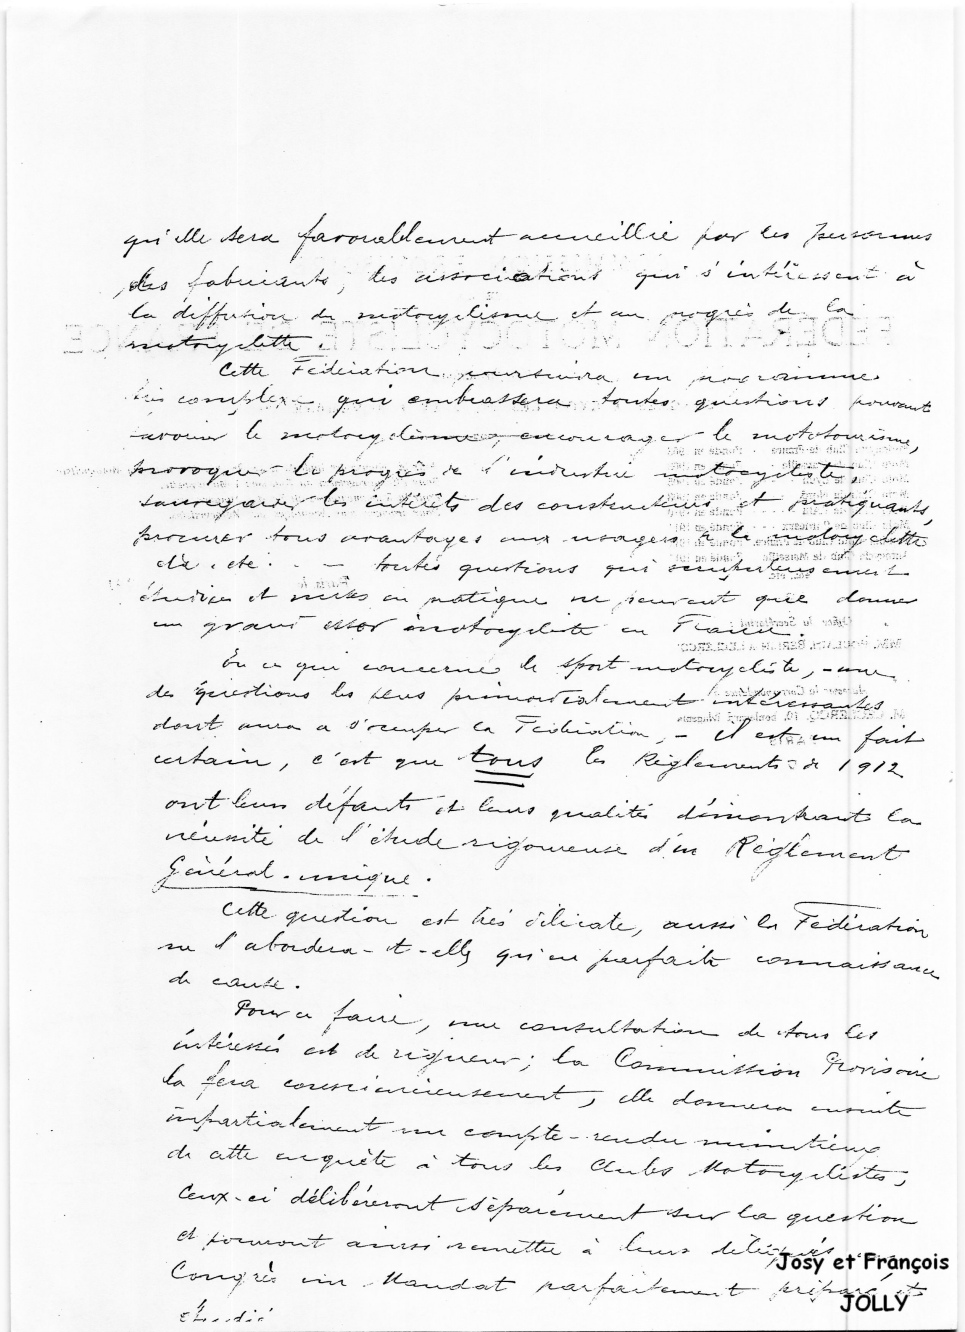 qu'elle sera favorablement accueillie par les personnes
, les fabricants, les associations qui s'intéressent à
la diffusion du motocyclisme et au progrès de la
motocyclette.
FEDERATION MOTOCYCLISTE DE FRANCE
Cette Fédération poursuivra un programme
très complexe qui embrassera toutes questions pouvant
favoriser le motocyclisme, encourager le mototourisme,
provoquer le progrès de l'industrie motocycliste,
sauvegarder les intérêts des constructeurs et pratiquants,
procurer tous avantages aux usagers de la motocyclette
etc. etc. - - toutes questions qui scrupuleusement
étudiées et mises en pratique ne peuvent que donner
un grand essor motocycliste en France.
En ce qui concerne le sport motocycliste, - une
des questions les plus primordialement intéressantes
dont aura à s'occuper la Fédération, - il est un fait
certain, c'est que tous les Règlements de 1912
ont leurs défauts et leurs qualités démontrant la
nécessité de l'étude rigoureuse d'un Règlement
Général-unique.
Cette question est très délicate, aussi la Fédération
ne l'abordera-t-elle qu'en parfaite connaissance
de cause.
Pour ce faire, une consultation de tous les
intéressés est de rigueur; la Commission Provisoire
la fera consciencieusement, elle donnera ensuite
impartialement un compte-rendu minutieux
de cette enquête à tous les Clubs Motocyclistes,
Ceux-ci délibéreront séparément sur la question
et pourront ainsi remettre à leurs délégués
Congrès un Mandat parfaitement préparé et
étudié
Josy et François
JOLLY